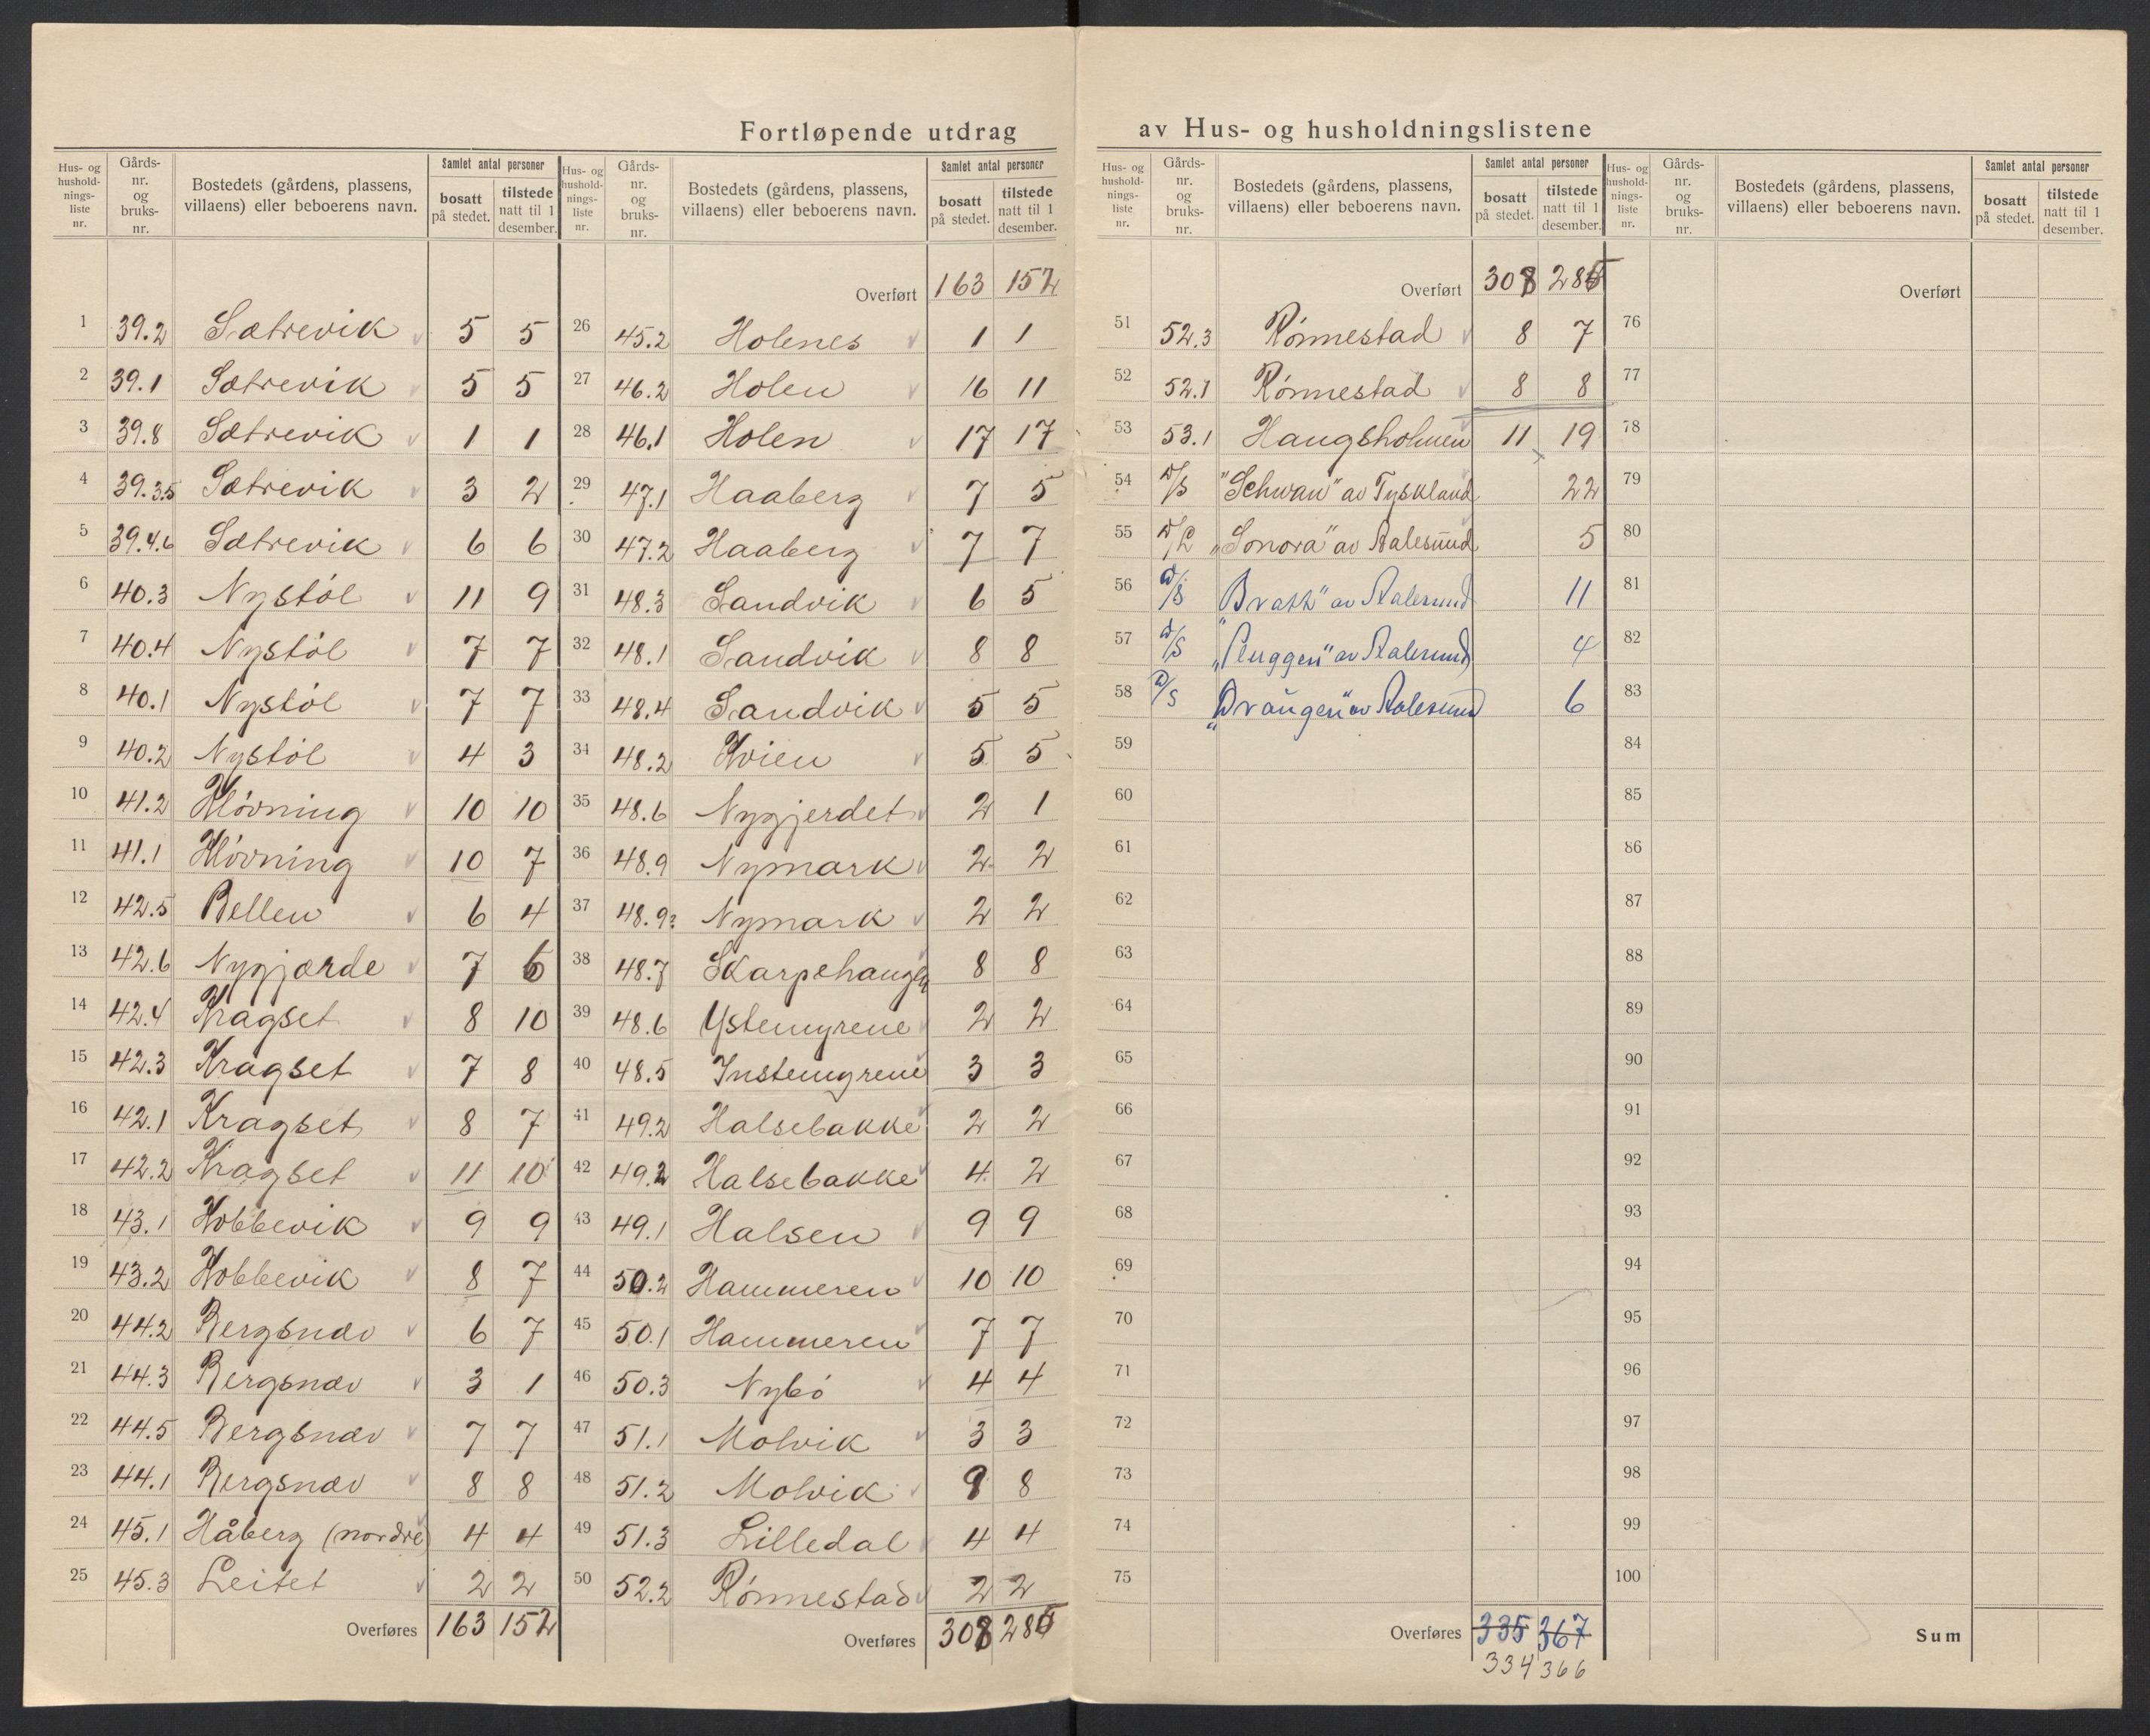 Fortløpende utdrag av Hus- og husholdningslistene
Hus- og hushold-nings-liste nr. Gårds-nr. og bruks-nr. Bostedets (gårdens, plassens, villaens) eller beboerens navn. Samlet antal personer bosatt på stedet. tilstede natt til 1 desember.
1 39.2 Sætrevik 5 5
2 39.1 Sætrevik 5 5
3 39.8 Sætrevik 1 1
4 39.3.5 Sætrevik 3 2
5 39.4.6 Sætrevik 6 6
6 40.3 Nystøl 11 9
7 40.4 Nystøl 7 7
8 40.1 Nystøl 7 7
9 40.2 Nystøl 4 3
10 41.2 Kløvning 10 10
11 41.1 Kløvning 10 7
12 42.5 Bellen 6 4
13 42.6 Nygjærde 7 6
14 42.4 Kragset 8 10
15 42.3 Kragset 7 8
16 42.1 Kragset 8 7
17 42.2 Kragset 11 10
18 43.1 Hobbevik 9 9
19 43.2 Hobbevik 8 7
20 44.2 Bergsnæv 6 7
21 44.3 Bergsnæv 3 1
22 44.5 Bergsnæv 7 7
23 44.1 Bergsnæv 8 8
24 45.1 Håberg (nordre) 4 4
25 45.3 Leitet 2 2
Overføres 163 152
Hus- og hushold-nings-liste nr. Gårds-nr. og bruks-nr. Bostedets (gårdens, plassens, villaens) eller beboerens navn. Samlet antal personer bosatt på stedet. tilstede natt til 1 desember.
Overført 163 152
26 45.2 Holenes 1 1
27 46.2 Holen 16 11
28 46.1 Holen 17 17
29 47.1 Haaberg 7 5
30 47.2 Haaberg 7 7
31 48.3 Sandvik 6 5
32 48.1 Sandvik 8 8
33 48.4 Sandvik 5 5
34 48.2 Kvien 5 5
35 48.6 Nygjerdet 2 1
36 48.9 Nymark 2 2
37 48.9? Nymark 2 2
38 48.7 Skarpehaugen 8 8
39 48.6 Ystemyrene 2 2
40 48.5 Instemyrene 3 3
41 49.2 Halsebakke 2 2
42 49.2 Halsebakke 4 2
43 49.1 Halsen 9 9
44 50.2 Hammeren 10 10
45 50.1 Hammeren 7 7
46 50.3 Nybø 4 4
47 51.1 Molvik 3 3
48 51.2 Molvik 9 8
49 51.3 Lilledal 4 4
50 52.2 Rønnestad 2 2
Overføres 308 285
Hus- og hushold-nings-liste nr. Gårds-nr. og bruks-nr. Bostedets (gårdens, plassens, villaens) eller beboerens navn. Samlet antal personer bosatt på stedet. tilstede natt til 1 desember.
Overført 308 285
51 52.3 Rønnestad 8 7
52 52.1 Rønnestad 8 8
53 53.1 Haugsholmen 11 19
54 D/S "Schwan" av Tyskland 22
55 "Sonora" av Aalesund 5
56 D/S av Aalesund 11
57 D/S "Pluggen" av Aalesund 4
58 D/S "Drangen" av Aalesund 6
59
60
61
62
63
64
65
66
67
68
69
70
71
72
73
74
75
Overføres 335 367
334 366
Hus- og hushold-nings-liste nr. Gårds-nr. og bruks-nr. Bostedets (gårdens, plassens, villaens) eller beboerens navn. Samlet antal personer bosatt på stedet. tilstede natt til 1 desember.
Overført
76
77
78
79
80
81
82
83
84
85
86
87
88
89
90
91
92
93
94
95
96
97
98
99
100
Sum